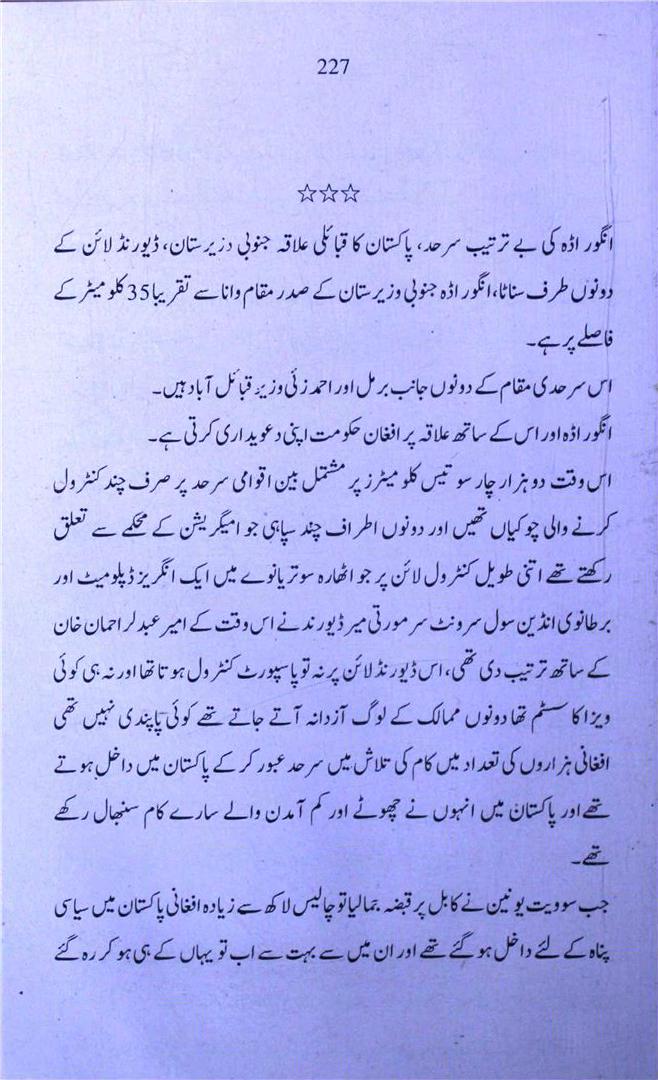 227
☆☆☆
انگور اڈہ کی بے ترتیب سرحد، پاکستان کا قبائلی علاقہ جنوبی وزیرستان، ڈیورنڈ لائن کے
دونوں طرف سناٹا،انگور اڈہ جنوبی وزیرستان کے صدر مقام وانا سے تقریبا35 کلو میٹر کے
فاصلے پر ہے۔
اس سرحدی مقام کے دونوں جانب برمل اور احمد زئی وزیر قبائل آباد ہیں۔
انگور اڈہ اور اس کے ساتھ علاقہ پر افغان حکومت اپنی دعویداری کرتی ہے۔
اس وقت دو ہزار چار سو تیس کلو میٹرز پر مشتمل بین اقوامی سرحد پر صرف چند کنٹرول
کرنے والی چوکیاں تھیں اور دونوں اطراف چند سپاہی جو امیگریشن کے محکمے سے تعلق
رکھتے تھے اتنی طویل کنٹرول لائن پر جو اٹھارہ سو تریانوے میں ایک انگریز ڈپلومیٹ اور
برطانوی انڈین سول سرونٹ سر مورتی میر ڈیورند نے اس وقت کے امیر عبدلراحمان خان
کے ساتھ ترتیب دی تھی، اس ڈیورنڈ لائن پر نہ تو پاسپورٹ کنٹرول ہوتا تھا اور نہ ہی کوئی
ویزا کا سسٹم تھا دونوں ممالک کے لوگ آزدانہ آتے جاتے تھے کوئی پاپندی نہیں تھی
افغانی ہزاروں کی تعداد میں کام کی تلاش میں سرحد عبور کر کے پاکستان میں داخل ہوتے
تھے اور پاکستان میں انہوں نے چھوٹے اور کم آمدن والے سارے کام سنبھال رکھے
تھے۔
جب سوویت یونین نے کابل پر قبضہ جمالیا تو چالیس لاکھ سے زیادہ افغانی پاکستان میں سیاسی
پناہ کے لئے داخل ہو گئے تھے اور ان میں سے بہت سے اب تو یہاں کے ہی ہو کر رہ گئے